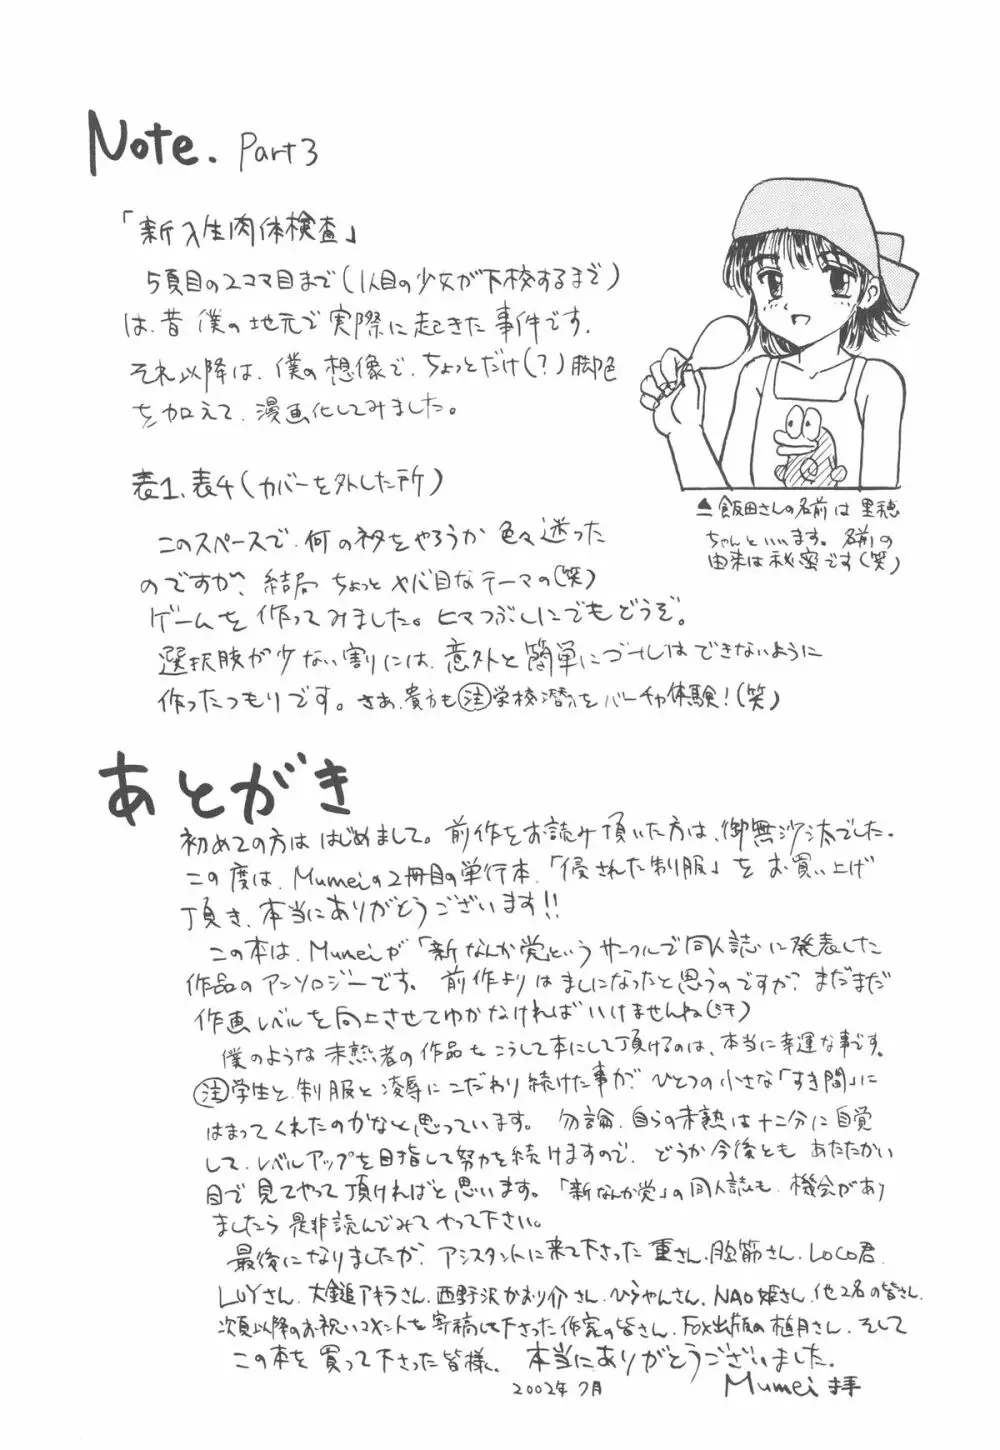 Note. Part3
「新入生肉体検査」
5頁目の2コマ目まで(1人目の少女が下校するまで)
は、昔 僕の地元で実際に起きた事件です。
それ以降は、僕の想像で、ちょっとだけ(?)脚色
を加えて、漫画化してみました。
▲飯田さんの名前は 里穂
ちゃんといいます。名前の
由来は秘密です(笑)
表1、表4(カバーを外した所)
このスペースで、何のネタをやろうか 色々迷った
のですが、結局 ちょっとヤバ目なテーマの(笑)
ゲームを作ってみました。ヒマつぶしにでもどうぞ。
選択肢が少ない割りには、意外と簡単にゴールはできないように
作ったつもりです。さあ、貴方も㊟学校潜入をバーチャ体験!(笑)
あとがき
初めての方は はじめまして。前作をお読み頂いた方は、御無沙汰でした。
この度は、Mumeiの2冊目の単行本、「侵された制服」を お買い上げ
頂き、本当にありがとうございます!!
この本は、Mumeiが「新なんか党」というサークルで同人誌に発表した
作品のアンソロジーです。前作よりはましになったと思うのですが、まだまだ
作画レベルを向上させてゆかなければいけませんね(汗)
僕のような未熟者の作品をこうして本にして頂けるのは、本当に幸運な事です。
㊟学生と、制服と凌辱にこだわり続けた事が、ひとつの小さな「すき間」に
はまってくれたのかなと思っています。勿論、自らの未熟は十二分に自覚
して、レベルアップを目指して努力を続けますので、どうか今後とも あたたかい
目で見てやって頂ければと思います。「新なんか党」の同人誌も、機会があり
ましたら 是非読んでみてやって下さい。
最後になりましたが、アシスタントに来て下さった 重さん、腔筋さん、LOCO君、
LUYさん、大鎚アキラさん、西野沢かおり介さん、ひらやんさん、NAO姫さん、他2名の皆さん、
次頁以降のお祝いコメントを寄稿して下さった作家の皆さん、FOX出版の植月さん、そして
この本を買って下さった皆様、本当にありがとうございました。
2002年7月 Mumei 拝